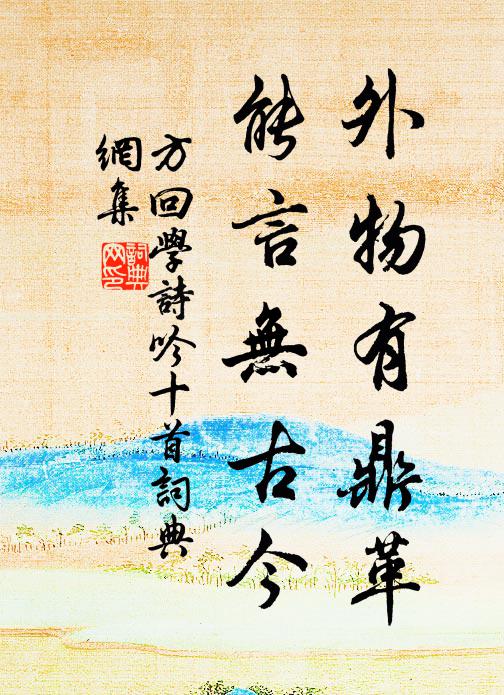 外物有鼎革
能言無古今
方回學詩吟十首詞典
網集
詞典
网印